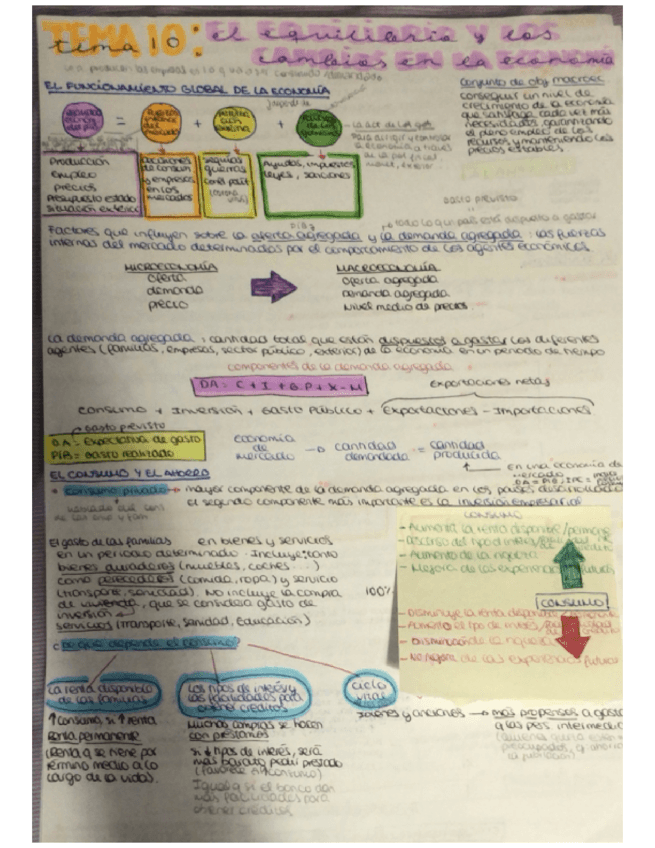 TEMA 10: EL EQUILIBRIO Y LOS
tema 10 cambios en la economía
EL FUNCIONAMIENTO GLOBAL DE LA ECONOMÍA
Conjunto de obj macroec
conseguir un nivel de
crecimiento de la economía
que satisfaga cada vez más
necesidades, garantizando
el pleno empleo de los
recursos y manteniendo los
precios estables
= + +
Producción
empleo
precios
Presupuesto estado
situación exterior
decisiones
de consum
y empresas
en los
mercados
sequías
guerras
Ayudas, impuestos
leyes, sanciones
gasto previsto
PIB
todo lo que país está dispuesto a gastar
Factores que influyen sobre la oferta agregada y la demanda agregada: las fuerzas
internas del mercado determinadas por el comportamiento de los agentes económicos.
MICROECONOMÍA
oferta
demanda
precio
MACROECONOMÍA
oferta agregada
demanda agregada
Nivel medio de precios
La demanda agregada: cantidad total que están dispuestos a gastar los diferentes
agentes (familias, empresas, sector público, exterior) de la economía en un periodo de tiempo
componentes de la demanda agregada
DA = C + I + G.P + X - M
exportaciones netas
consumo + Inversión + Gasto Público + Exportaciones - Importaciones
gasto previsto
DA = Expectativa de gasto
PIB = Gasto realizado
economía
de
mercado
→ cantidad
demandada
= cantidad
producida
en una economía de
mercado
EL CONSUMO Y EL AHORRO
+ consumo privado → mayor componente de la demanda agregada en los países desarrollados
el segundo componente más importante es la inversión empresarial
El gasto de las familias en bienes y servicios
en un periodo determinado. Incluye: tanto
bienes duraderos (muebles, coches...)
como perecederos (comida, ropa) y servicio
(transporte, sanidad). No incluye la compra
de vivienda, que se considera gasto de
inversión
servicios (transporte, sanidad, educación)
100%
CONSUMO
- Aumenta la renta disponible/perman
- Descenso del tipo de interés
- Aumento de la riqueza
- Mejora de las expectativas futuras
CONSUMO
- Disminuye la renta disponible
- Aumento el tipo de interés
- Disminución de la riqueza
- No mejora de las expectativas futuras
¿De qué depende el consumo?
La renta disponible
de las familias
Los tipos de interés y
las facilidades para
obtener créditos
ciclo
vital
↑ consumo, si ↑ renta
Renta permanente
(Renta q se tiene por
término medio a lo
largo de la vida).
Muchas compras se hacen
con préstamos
si ↓ tipos de interés, será
más barato pedir prestado
(favorece el consumo)
Igual q si el banco dan
más facilidades para
obtener créditos
Jóvenes y ancianos → más propensos a gasta
q las pers intermedia